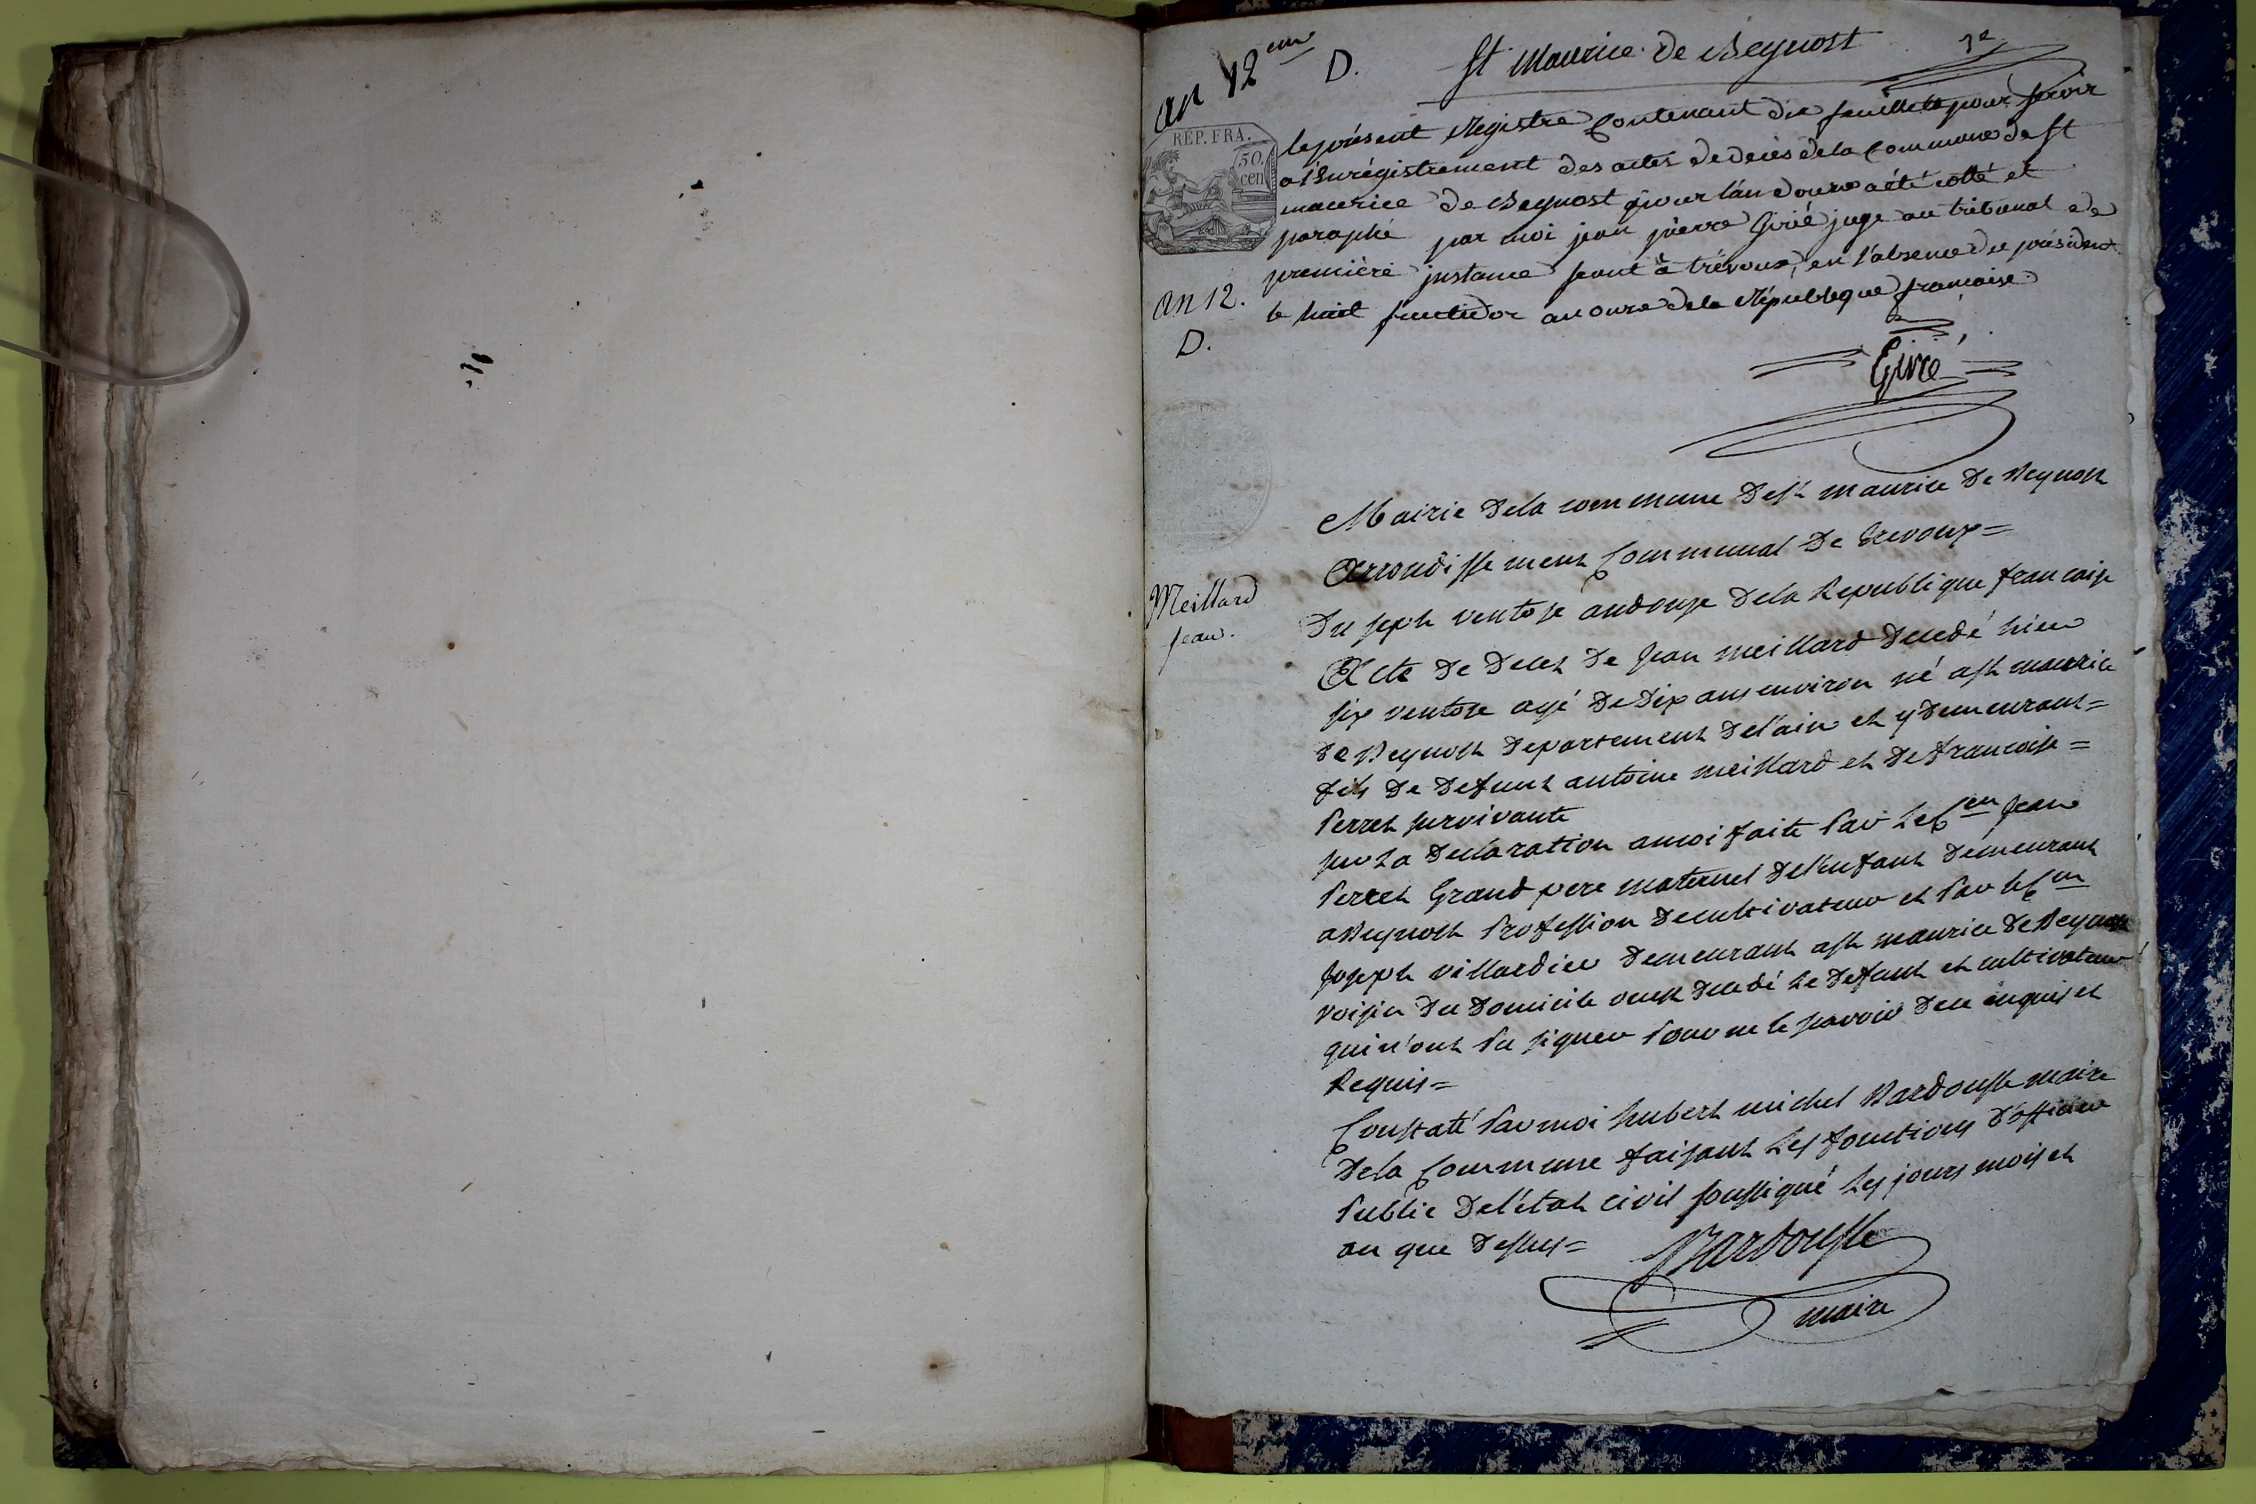 an 12eme
D.
St Maurice de Beynost
1e
REP. FRA.
50.
cen
le présent Registre Contenant dix feuillets pour servir
a l'Enrégistrement des actes de décès dela Commune de St
maurice de Beynost pour l'an douze a été cotté et
paraphé par moi jean pierre Givré juge au tribunal de
première instance séant à trévoux, en l'absence du président
le huit fructidor an onze dela République française
an 12.
D.
Givré
Mairie dela commune de St maurice de Beynost
Arrondissement Communal de Trevoux =
Meillard
jean.
Du sept ventose an douze dela Republique francaise
Acte de Deces de Jean meillard decedé hier
six ventose agé de dix ans environ né a St maurice
de Beynost departement de l'ain et y demeurant =
fils de defunt antoine meillard et de francoise =
Perret survivante
sur la declaration a moi faite Par le Cen Jean
Perret Grand pere maternel de l'enfant demeurant
a Beynost Profession de cultivateur et Par le Cen
Joseph villardier demeurant a St maurice de Beynost
voisin du domicile ou est decedé le defunt et cultivateur
qui n'ont Su signer Pour ne le scavoir de ce enquis et
Requis =
Constaté Par moi hubert michel Bardousse maire
dela Commune faisant les fonctions d'officier
Public de l'état civil soussigné les jours mois et
an que dessus =
Bardousse
maire